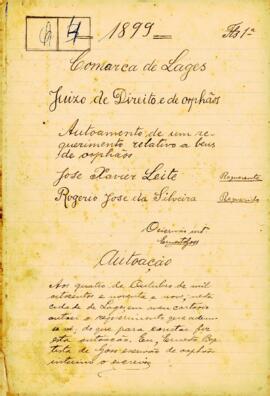 1899
Fls 1ª
Comarca de Lages
Juizo de Direito e de orphãos
Autoamento de um re-
querimento relativo a bens
de orphãos
José Xavier Leite Requerente
Rogerio José da Silveira Requerido
Escrivão int
Autoação
Aos quatro de Outubro de mil
oitocentos e noventa e nove, nesta
cidade de Lages, em meu cartorio
autuei o requerimento que adean-
te vi, do que para constar fiz
esta autoação. Eu, Ernesto Bap
tista de Goss escrivão de orphãos
interino o escrevi